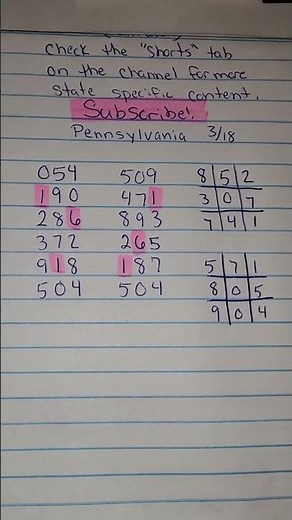 check the "shorts" tab
on the channel for more
state specific content.
Subscribe!
Pennsylvania 3/18
054 509 8 5 2
190 471 3 0 7
286 893 7 4 1
372 265
918 187 5 7 1
504 504 8 0 5
9 0 4